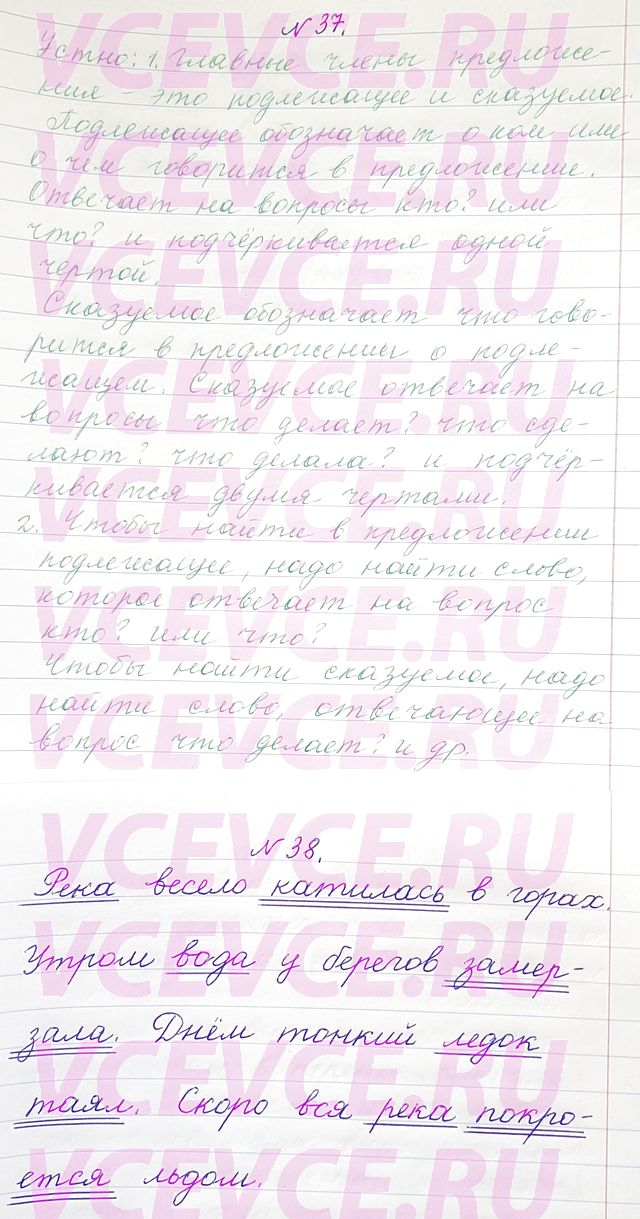 № 37.
Устно: 1. Главные члены предложе-
ния - это подлежащее и сказуемое.
Подлежащее обозначает о ком или
о чём говорится в предложении.
Отвечает на вопросы кто? или
что? и подчёркивается одной
чертой.
Сказуемое обозначает что гово-
рится в предложении о подле-
жащем. Сказуемое отвечает на
вопросы что делает? что сде-
лают? что делала? и подчёр-
кивается двумя чертами.
2. Чтобы найти в предложении
подлежащее, надо найти слово,
которое отвечает на вопрос
кто? или что?
Чтобы найти сказуемое, надо
найти слово, отвечающее на
вопрос что делает? и др.
№ 38.
Река весело катилась в горах.
Утром вода у берегов замер-
зала. Днём тонкий ледок
таял. Скоро вся река покро-
ется льдом.
VCEVCE.RU
VCEVCE.RU
VCEVCE.RU
VCEVCE.RU
VCEVCE.RU
VCEVCE.RU
VCEVCE.RU
VCEVCE.RU
VCEVCE.RU
VCEVCE.RU
VCEVCE.RU